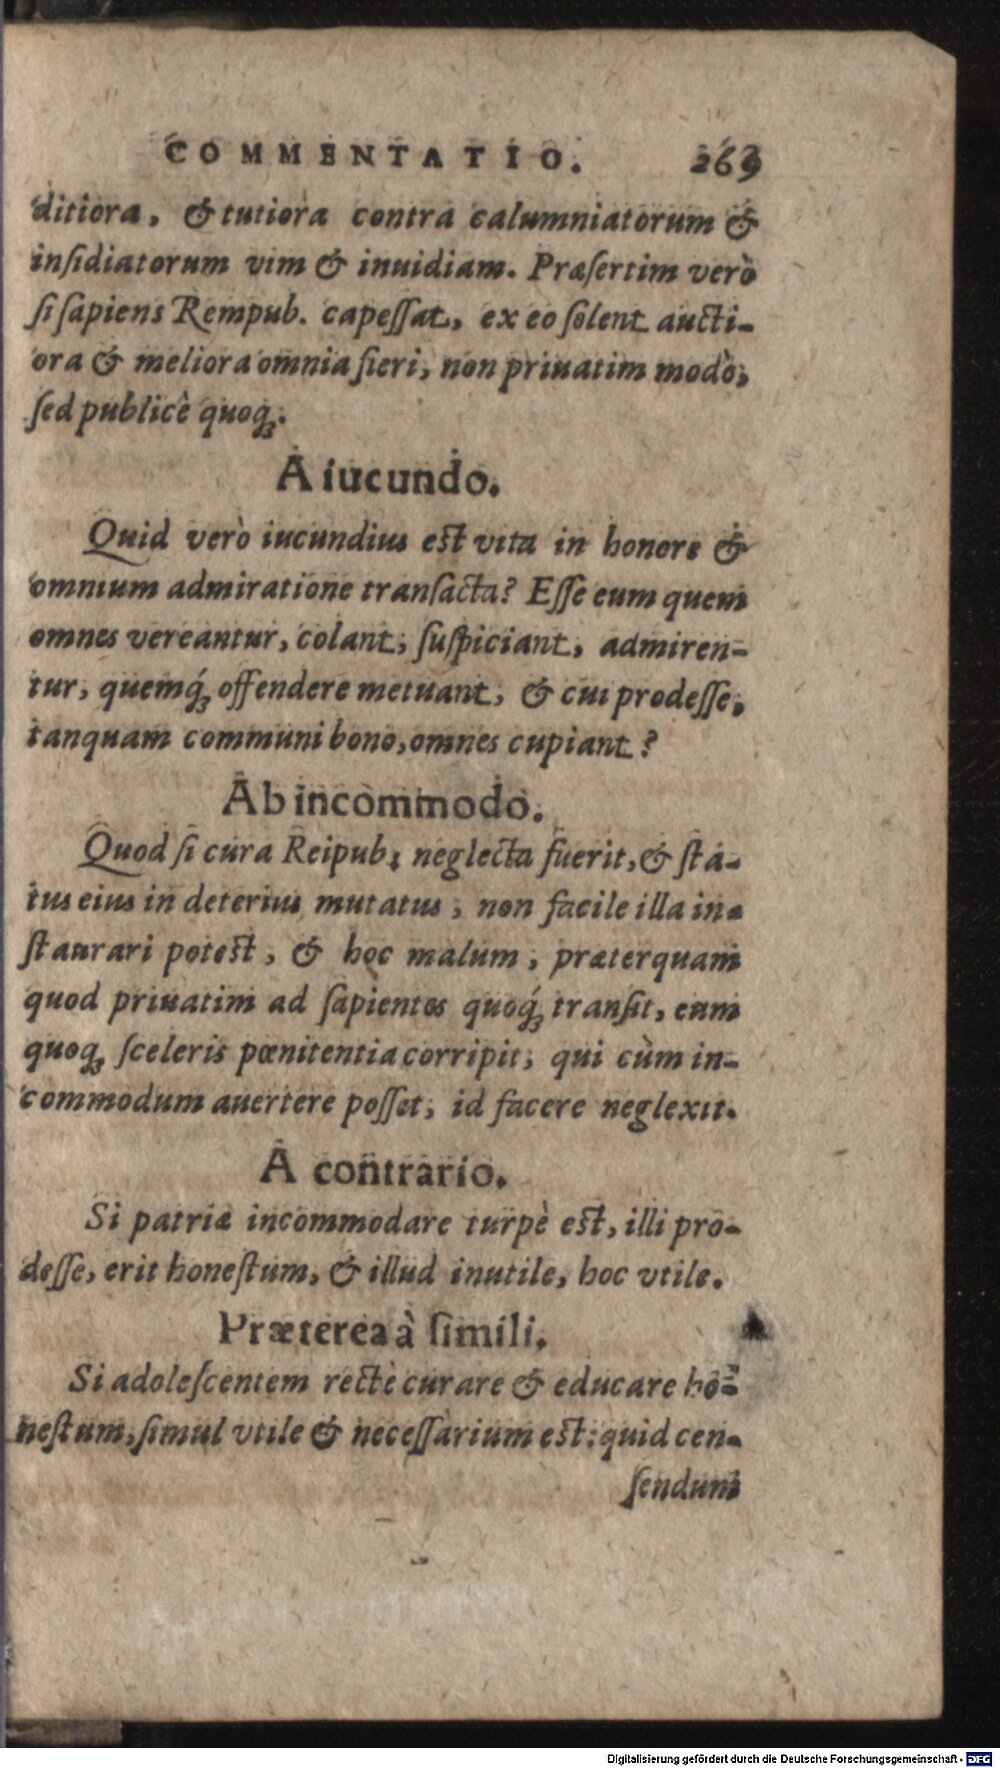 COMMENTATIO. 269
ditiora, & tutiora contra calumniatorum &
inſidiatorum vim & inuidiam. Præſertim verò
ſi ſapiens Rempub. capeſſat, ex eo ſolent aucti-
ora & meliora omnia fieri, non priuatim modò,
ſed publicè quoqꝫ.
A iucundo.
Quid verò iucundius est vita in honore &
omnium admiratione transacta? Eſſe eum quem
omnes vereantur, colant, ſuſpiciant, admiren-
tur, quemqꝫ́ offendere metuant, & cui prodeſſe,
tanquam communi bono, omnes cupiant?
Ab incommodo.
Quod ſi cura Reipub; neglecta fuerit, & ſta-
tus eius in deterius mutatus, non facile illa in-
ſtaurari potest, & hoc malum, præterquam
quod priuatim ad ſapientes quoqꝫ́ tranſit, eum
quoqꝫ ſceleris pœnitentia corripit, qui cùm in-
commodum auertere poſſet, id facere neglexit.
A contrario.
Si patriæ incommodare turpè est, illi pro-
deſſe, erit honeſtum, & illud inutile, hoc vtile.
Præterea à ſimili.
Si adoleſcentem rectè curare & educare ho-
neſtum, ſimul vtile & neceſſarium est: quid cen-
ſendum
Digitalisierung gefördert durch die Deutsche Forschungsgemeinschaft - DFG